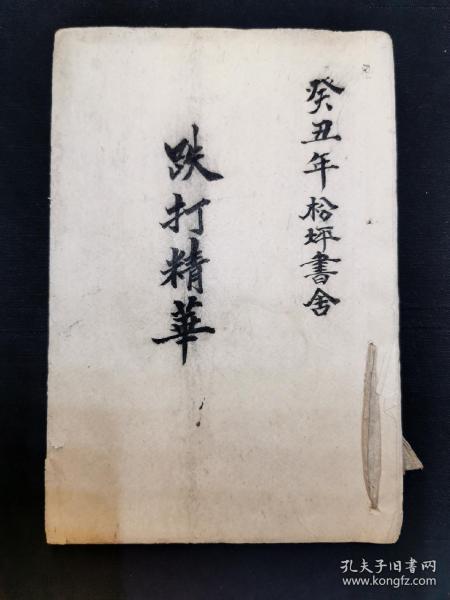 癸丑年松坪書舍
跌打精華
孔夫子旧书网
www.kongfz.com